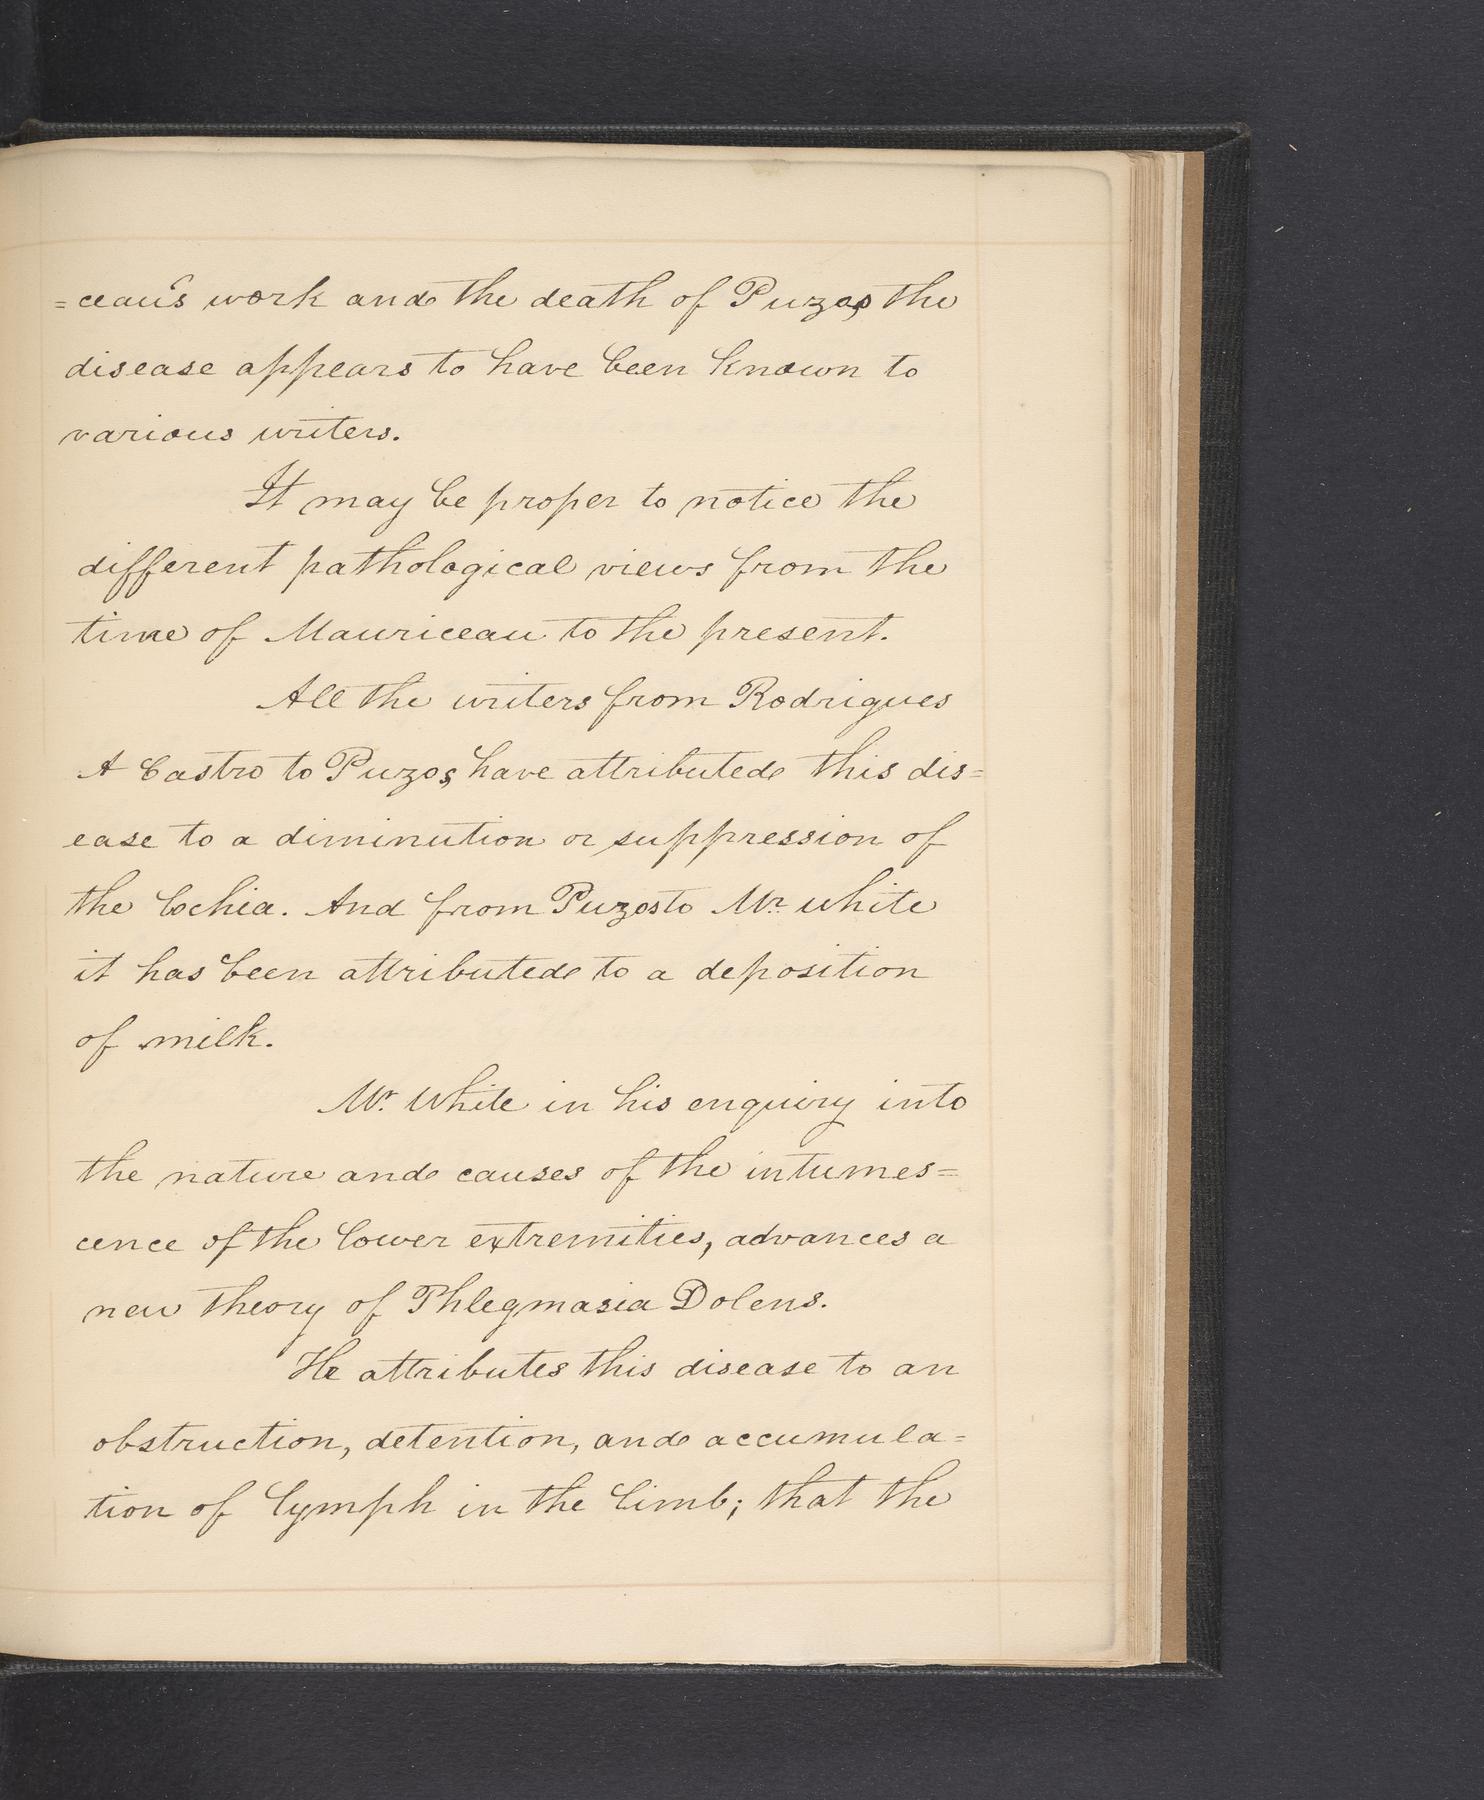 =ceau's work and the death of Puzos the
disease appears to have been known to
various writers.
It may be proper to notice the
different pathological views from the
time of Mauriceau to the present.
All the writers from Rodrigues
A Castro to Puzos have attributed this dis=
ease to a diminution or suppression of
the Lochia. And from Puzos to Mr. White
it has been attributed to a deposition
of milk.
Mr. White in his enquiry into
the nature and causes of the intumes=
cence of the lower extremities, advances a
new theory of Phlegmasia Dolens.
He attributes this disease to an
obstruction, detention, and accumula=
tion of lymph in the limb; that the